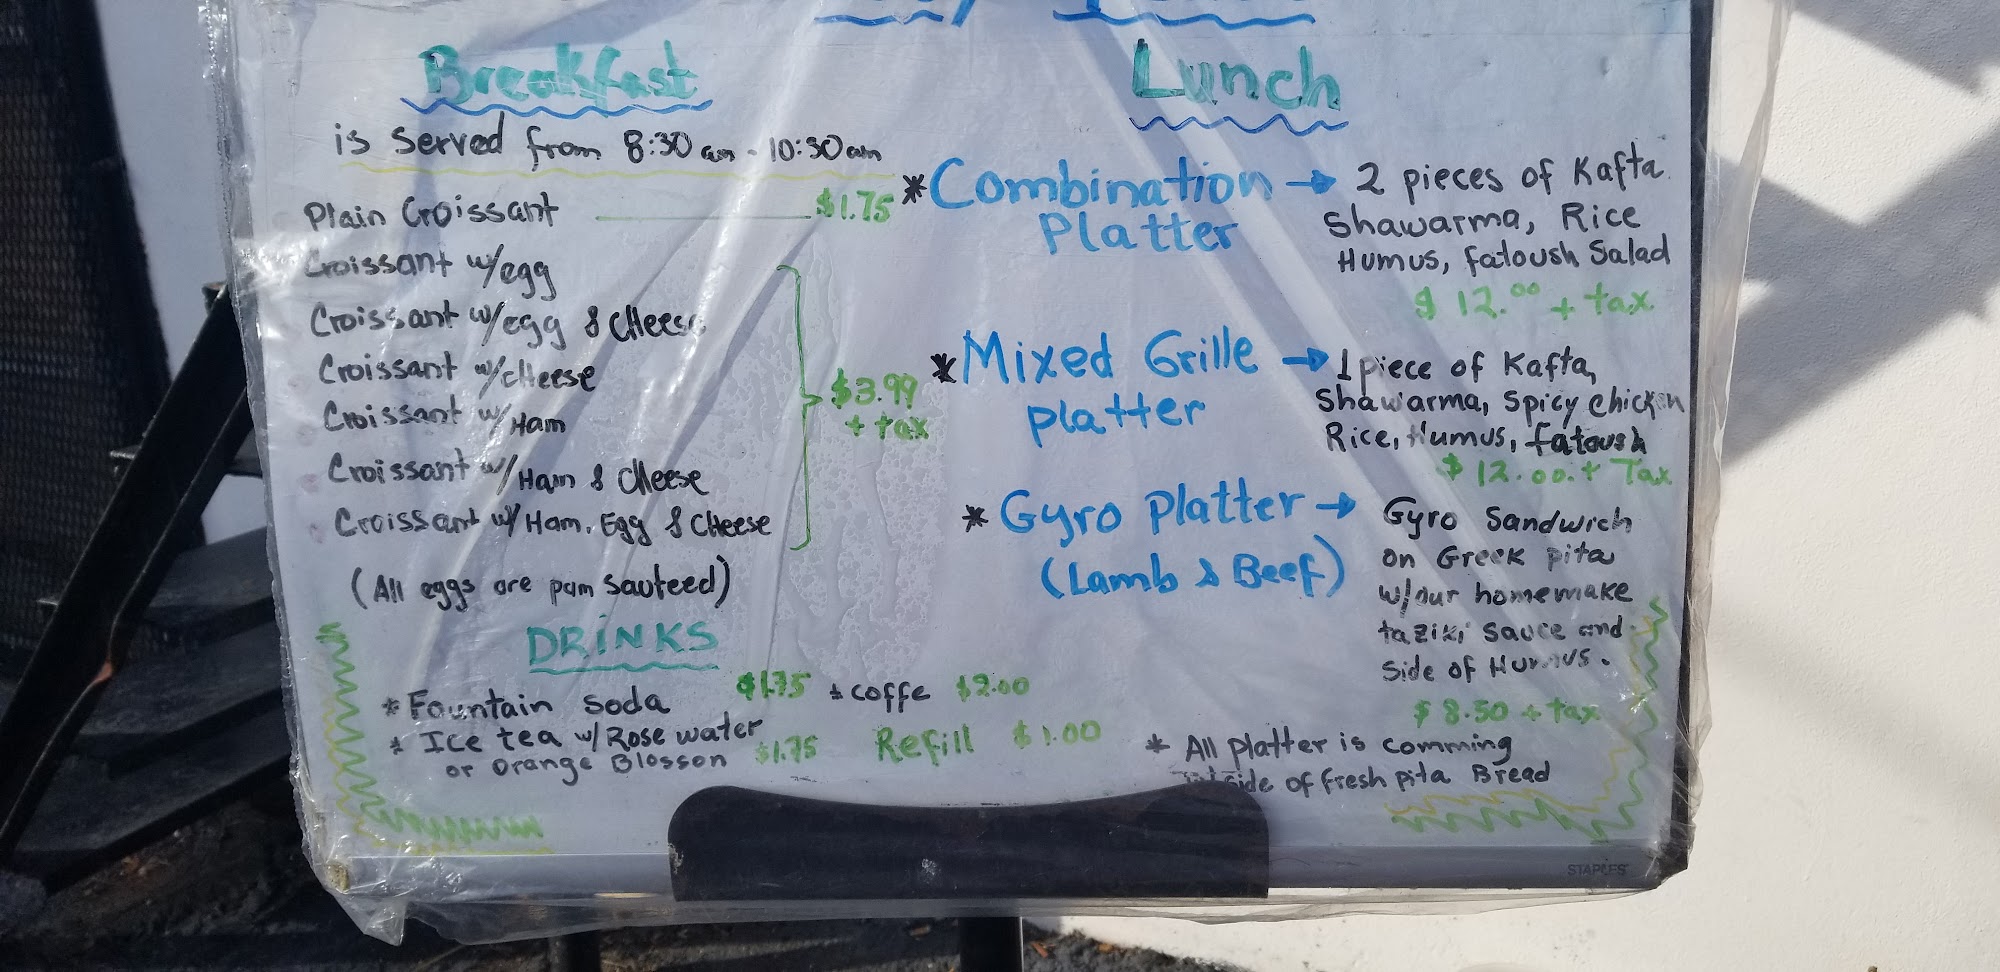 Breakfast
is served from 8:30 am - 10:30 am
Plain Croissant $1.75
Croissant w/egg
Croissant w/egg & Cheese
Croissant w/cheese
Croissant w/Ham
Croissant w/Ham & Cheese
Croissant w/Ham, Egg & Cheese
$3.99
+ tax
(All eggs are pam sauteed)
DRINKS
* Fountain Soda $1.75
* Ice tea w/Rose water
or Orange Blosson $1.75
* coffe $2.00
Refill $1.00
Lunch
* Combination Platter → 2 pieces of Kafta
Shawarma, Rice
Humus, fatoush Salad
$12.00 + tax
* Mixed Grille Platter → 1 piece of Kafta,
Shawarma, Spicy chicken
Rice, Humus, fatoush
$12.00 + Tax
* Gyro Platter → Gyro Sandwich
(Lamb & Beef)
on Greek pita
w/our homemake
taziki sauce and
side of Humus.
$8.50 + tax
* All platter is comming
side of fresh pita Bread
STAPLES